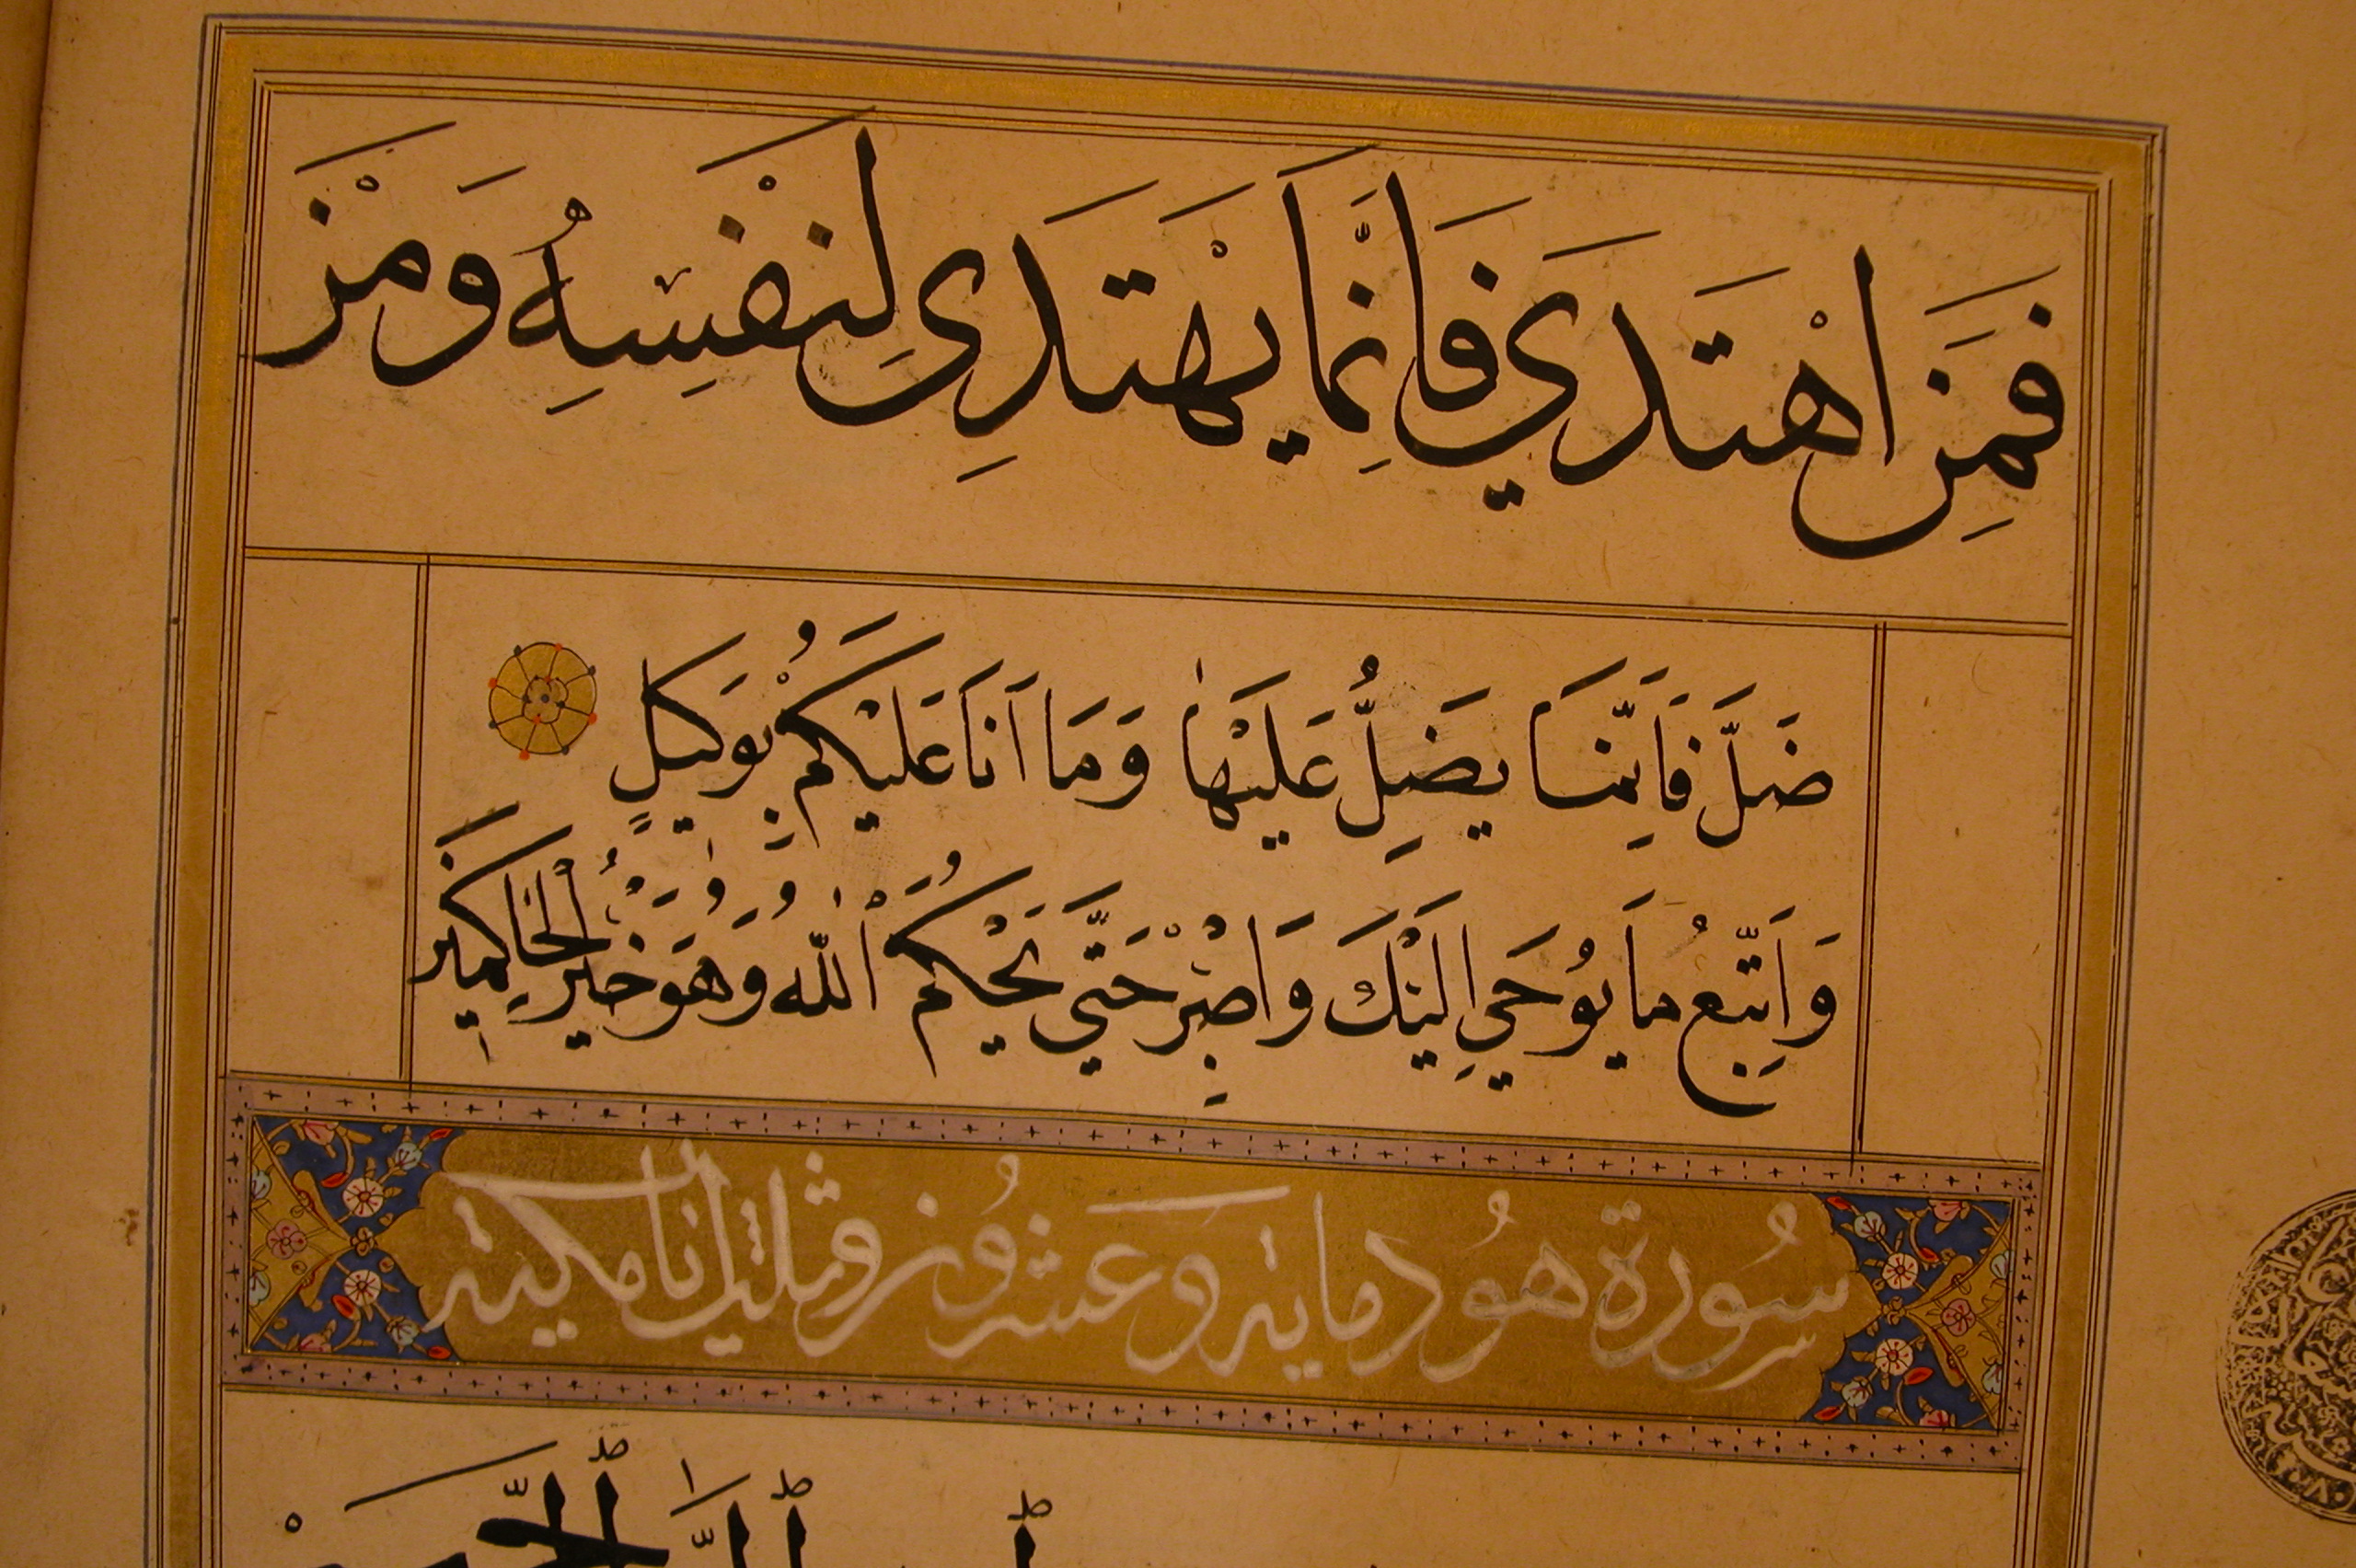 فَمَنِ اهْتَدَي فَاِنَّمَا يَهْتَدِي لِنَفْسِهِ وَمَنْ
ضَلَّ فَاِنَّمَا يَضِلُّ عَلَيْهَا وَمَا اَنَا عَلَيْكُمْ بِوَكيلٍ
وَاتَّبِعْ مَا يُوحَي اِلَيْكَ وَاصْبِرْ حَتَّي يَحْكُمَ اللّٰهُ وَهُوَ خَيْرُ الْحَاكِمِينَ
سُورة هُود ماية وعشرُون وثلث اٰيات مكية